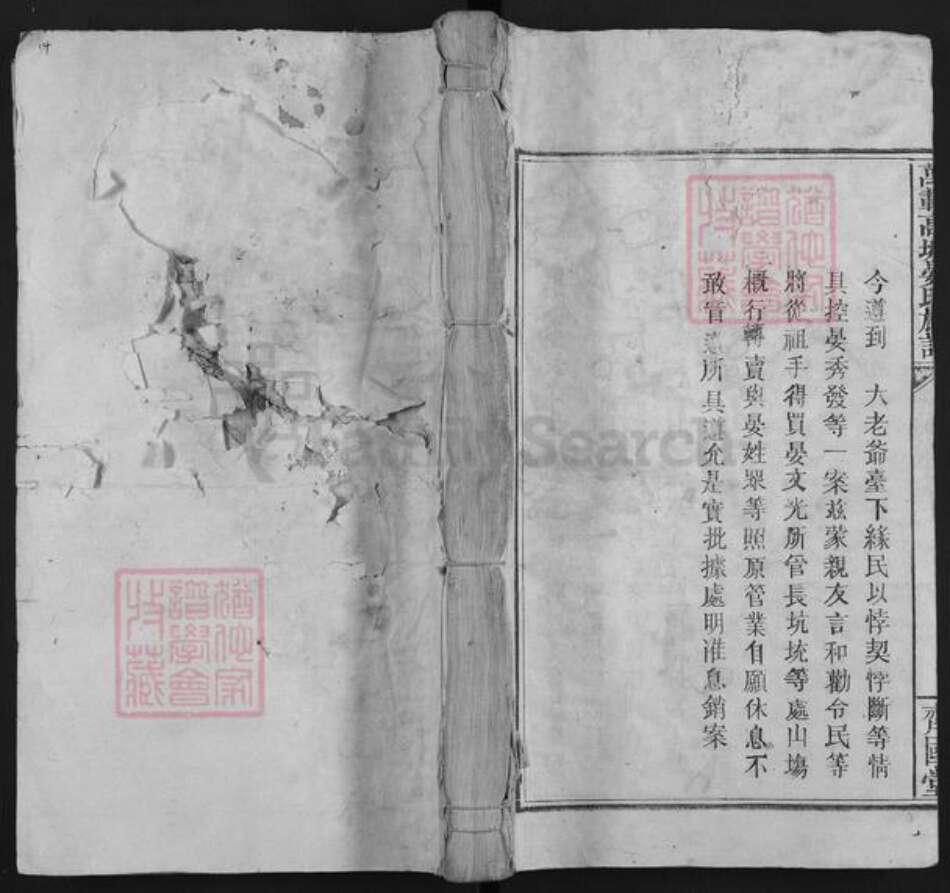 今遵到　大老爺臺下緣民以悖契悖斷等情
具控晏秀發等一案兹蒙親友言和勸令民等
將從祖手得買晏文光所管長坑坑等處山塲
概行轉賣與晏姓眾等照原管業自願休息不
敢冒瀆所具遵允是實批據處明准息銷案
晏氏族譜
齊國堂
譜學會
特藏
譜學會
特藏